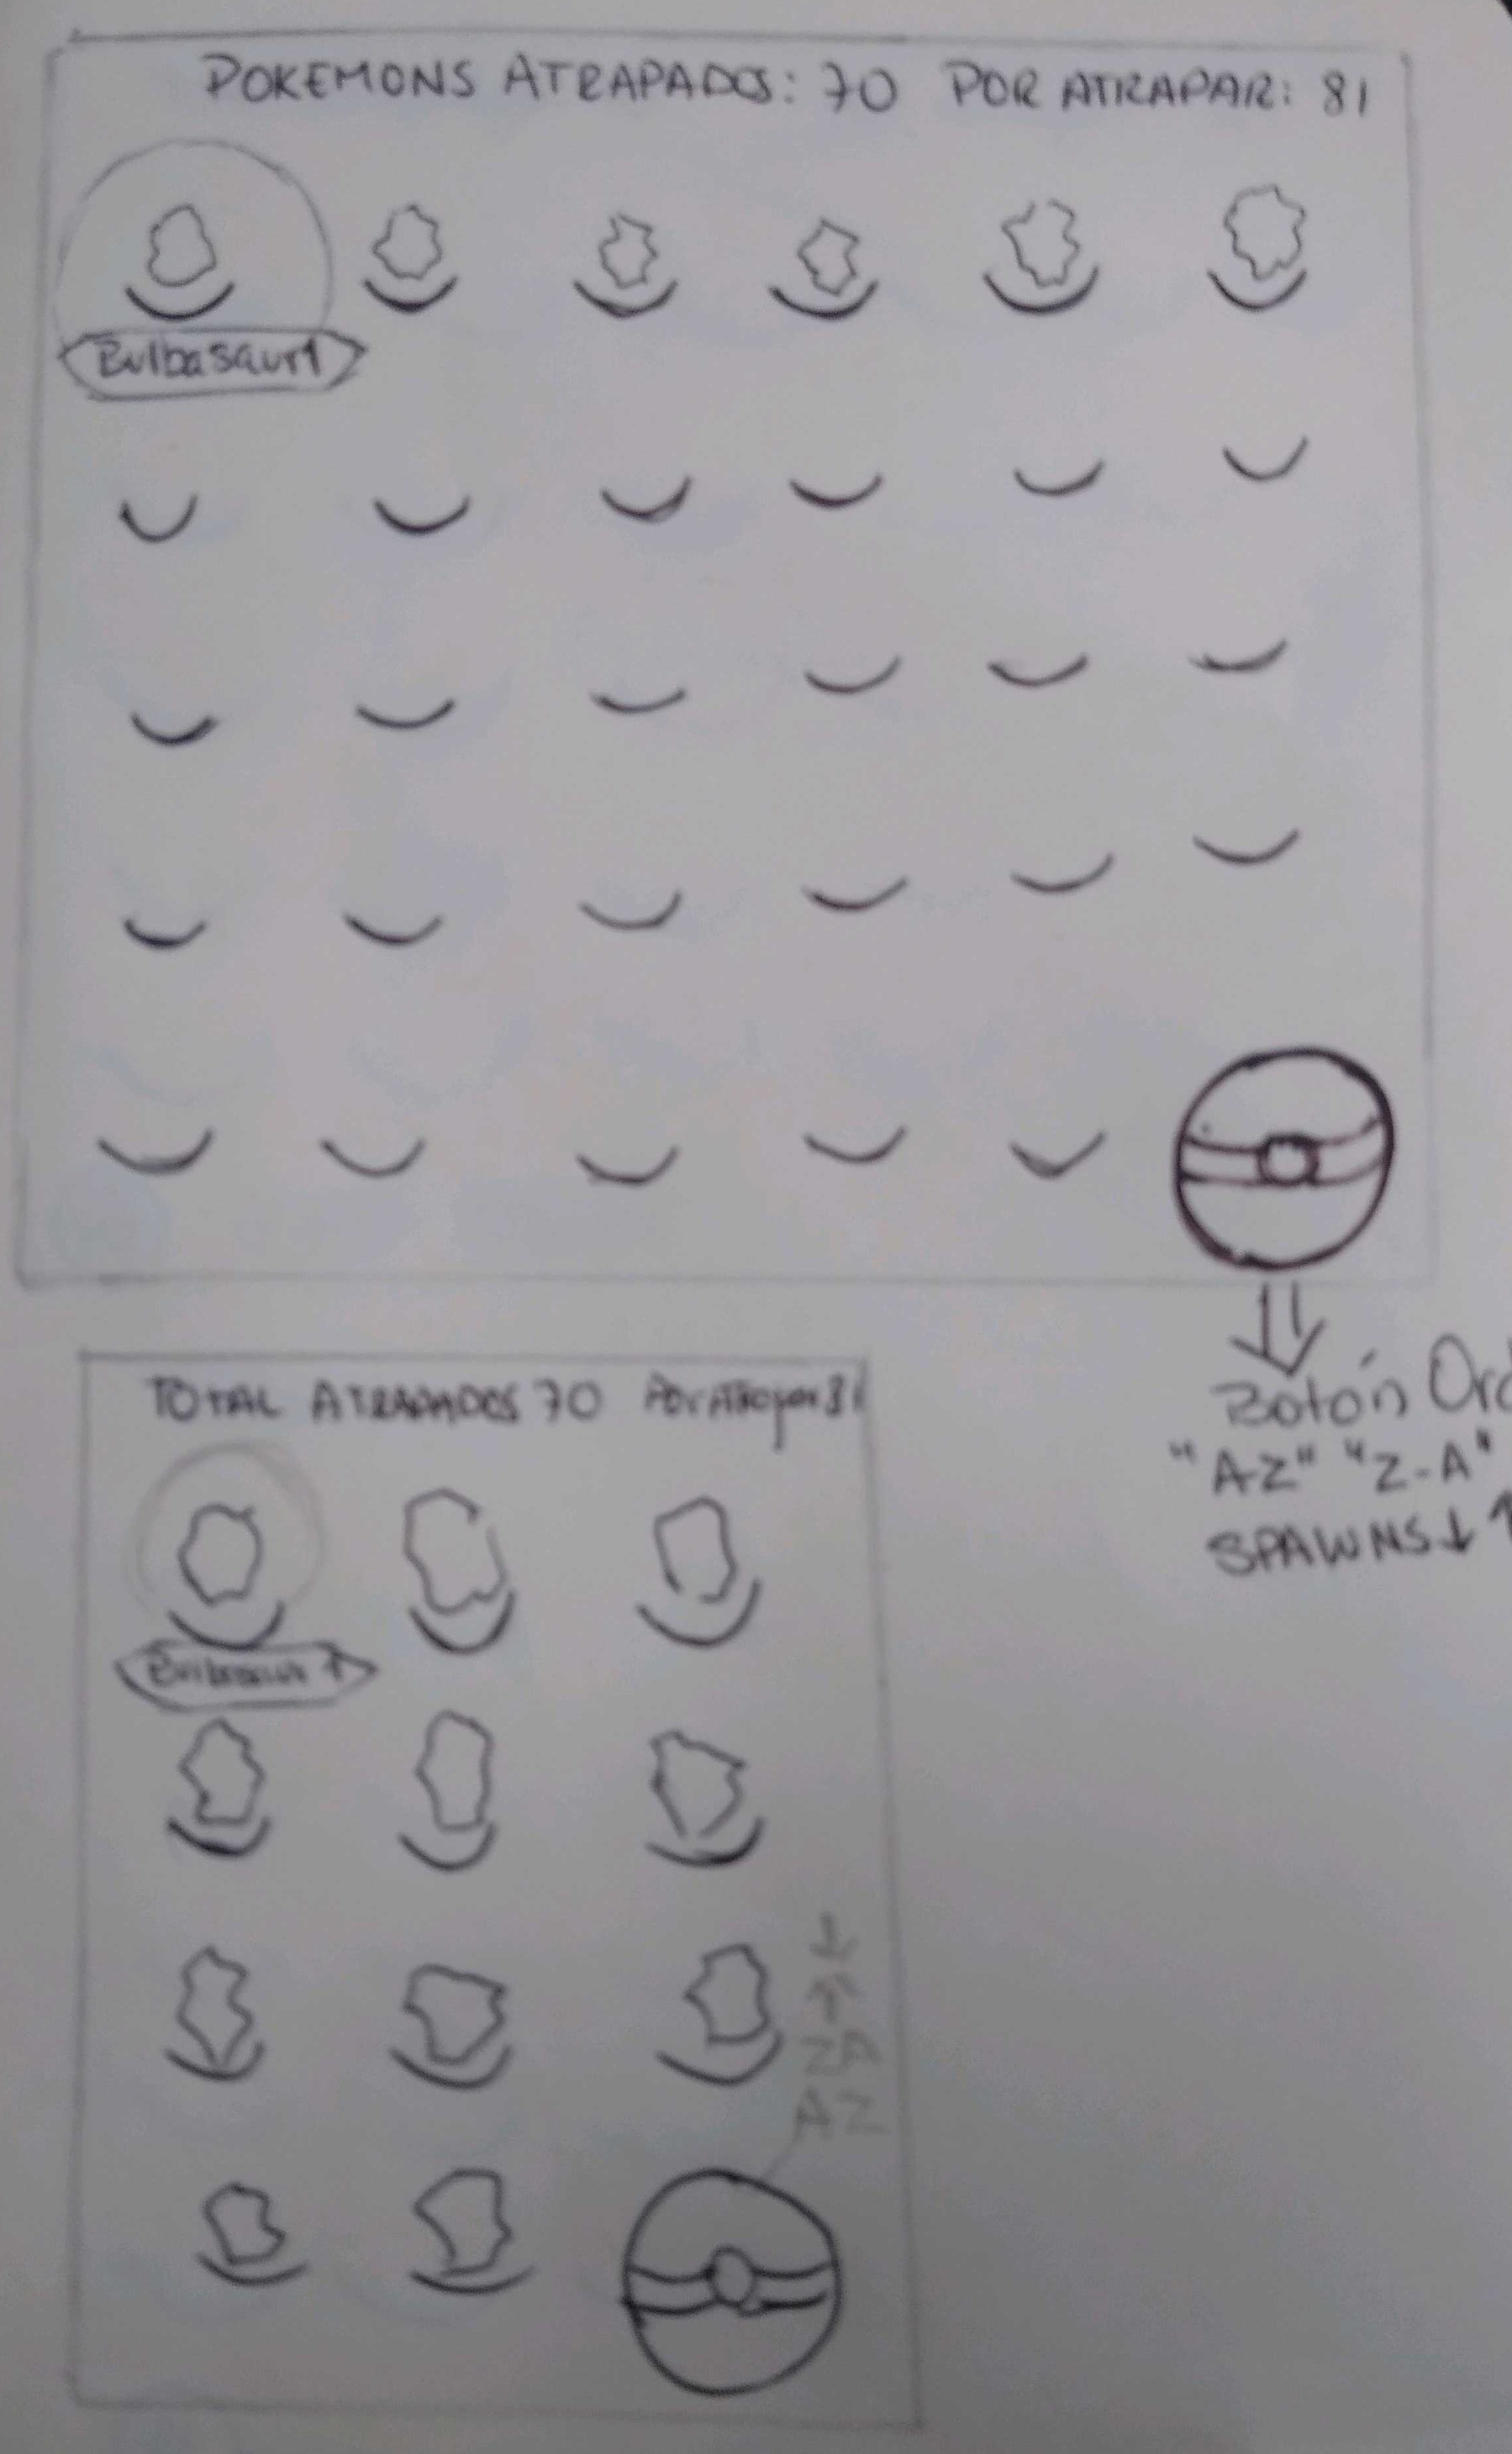 POKEMONS ATRAPADOS: 70 POR ATRAPAR: 81
Bulbasaur 1
Botón Ord
"AZ" "Z-A"
SPAWNS ↓ ↑
TOTAL ATRAPADOS 70 Por Atrapar 81
Bulbasaur 1
↓
↑
ZA
AZ